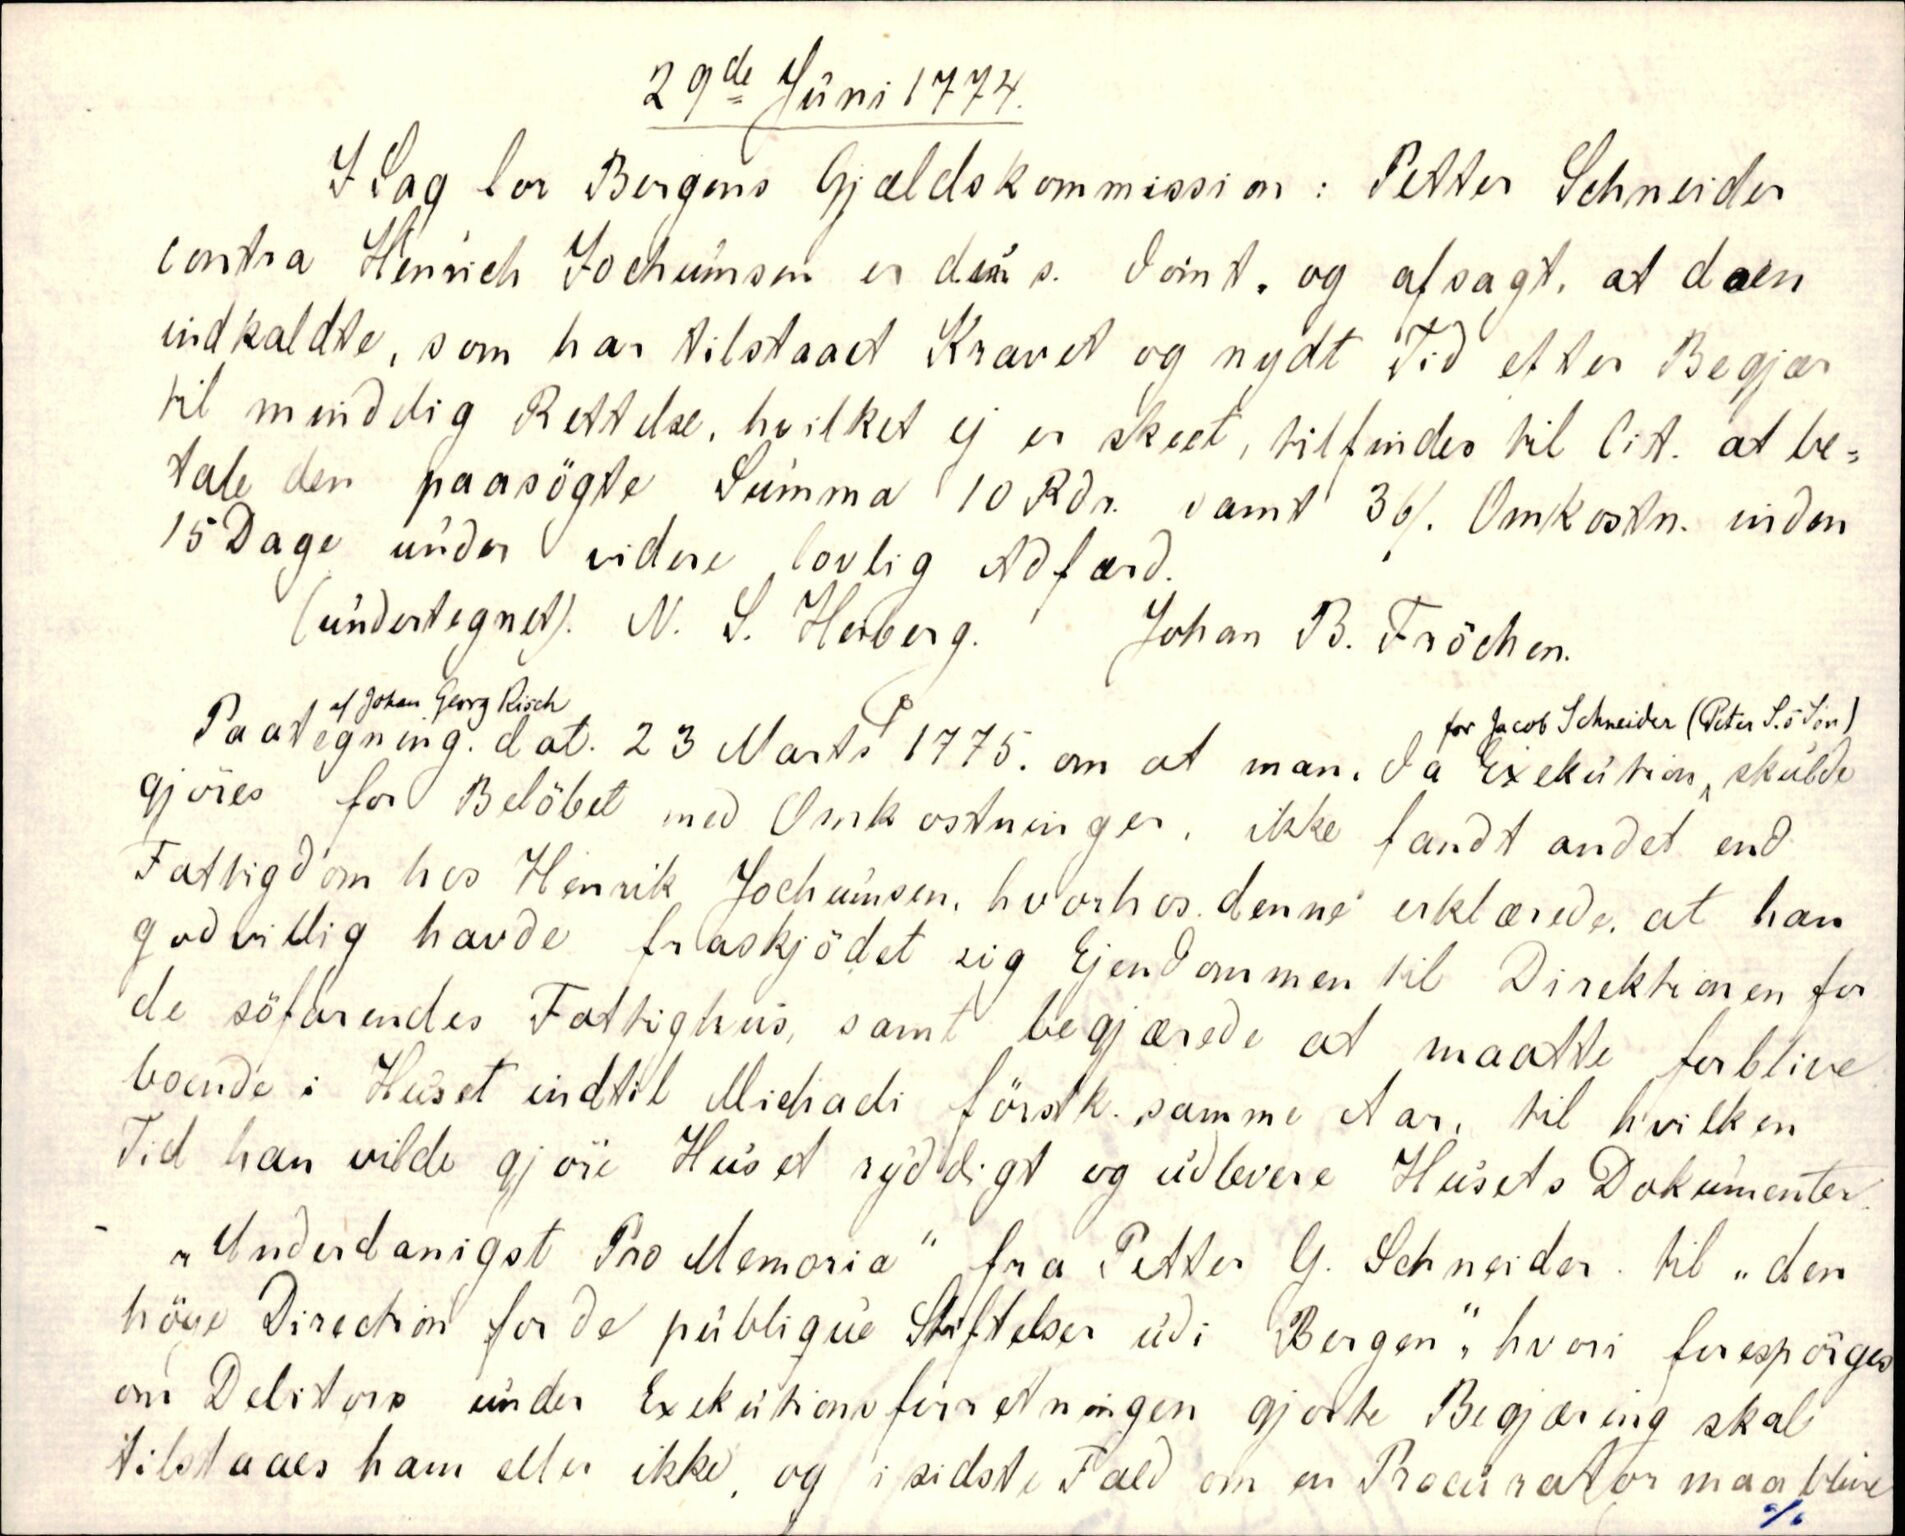 29de Juni 1774.
I Sag for Bergens Gjældskommission: Petter Schneider
contra Henrich Jochumsen er den s. Dömt. og afsagt, at den
indkaldte, som har tilstaaet Kravet og nydt Tid efter Begjær
til minddig Rettelse, hvilket ej er skeet, tilfindes til Cit. at be-
tale den paasögte Summa 10 Rdr. samt 36/. Omkostn. inden
15 Dage under videre lovlig Adfærd.
(undertegnet). N. S. Herberg. Johan B. Fröchen.
af Johan Georg Risch for Jacob Schneider (Peter S.s Sön)
Paategning. dat. 23 Marts 1775. om at man, da Exekution skulde
gjöres for Belöbet med Omkostninger, ikke fandt andet end
Fattigdom hos Henrik Jochumsen, hvorhos denne erklærede, at han
godvillig havde fraskjödet sig Ejendommen til Direktionen for
de söfarendes Fattighus, samt begjærede at maatte forblive
boende i Huset indtil Michaeli förstk. samme Aar, til hvilken
Tid han vilde gjöre Huset ryddigt og udlevere Husets Dokumenter.
- „Underdanigst Pro Memoria" fra Petter G. Schneider til „den
höye Direction for de publique Stiftelser udi Bergen", hvori forespörges
om Debitors under Exekutionsforretningen gjorte Begjæring skal
tilstaaes ham eller ikke, og i sidste Fald om en Procurator maa blive
%